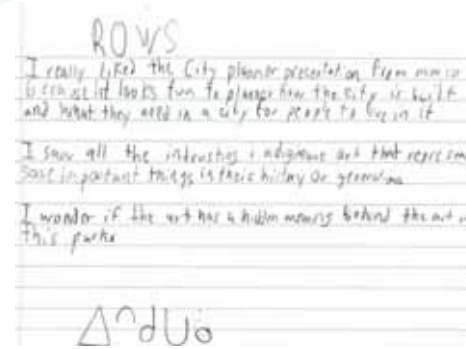 ROWS
I really liked the City planner presentation from
because it looks fun to planner how the city is built
and what they need in a city for people to live in it
I saw all the intresting indiginous art that represent
some important things in their histiry or
I wonder if the art has a hiddin meaning behind the art
this parke